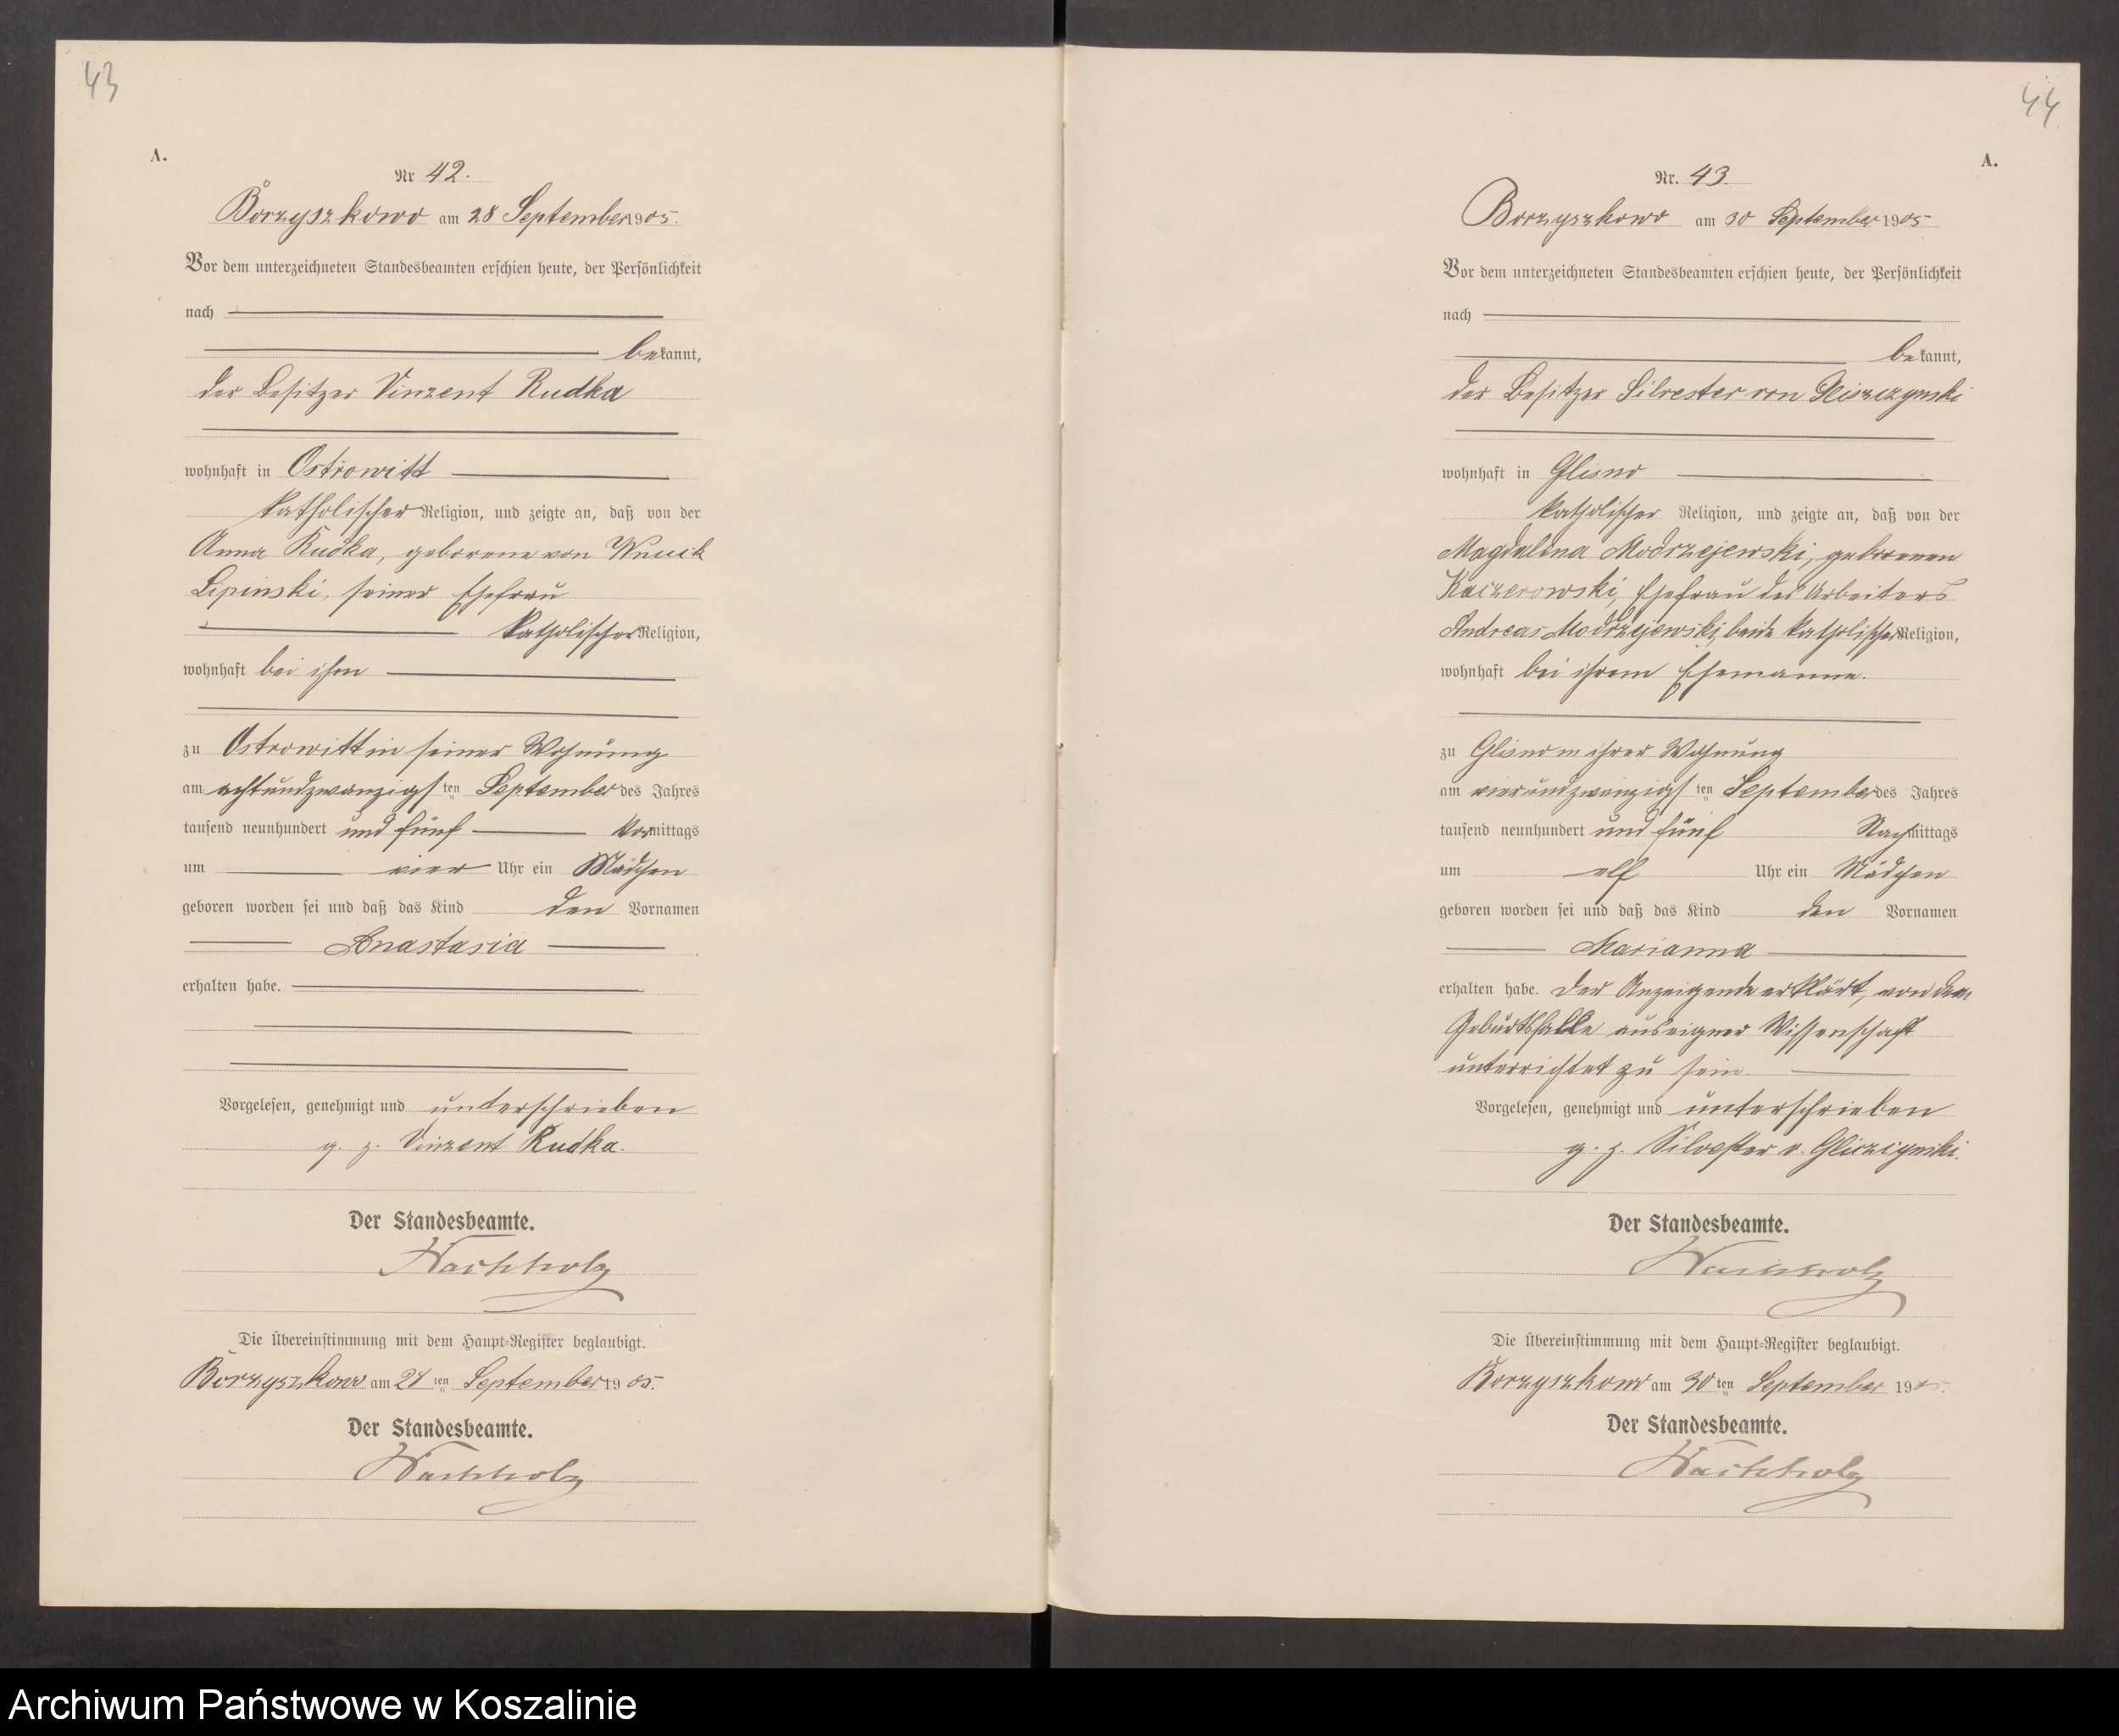 43
A.
Nr 42.
Borzyszkowo am 28 September 1905.
Vor dem unterzeichneten Standesbeamten erschien heute, der Persönlichkeit
nach
bekannt,
der Besitzer Vinzent Rudka
wohnhaft in Ostrowitt
katholischer Religion, und zeigte an, daß von der
Anna Rudka, geborene von Wnuck
Lipinski, seiner Ehefrau
katholischer Religion,
wohnhaft bei ihm
zu Ostrowitt in seiner Wohnung
am achtundzwanzigsten September des Jahres
tausend neunhundert und fünf Vormittags
um vier Uhr ein Mädchen
geboren worden sei und daß das Kind den Vornamen
Anastasia
erhalten habe.
Vorgelesen, genehmigt und unterschrieben
g. z. Vinzent Rudka.
Der Standesbeamte.
Wachholz
Die Übereinstimmung mit dem Haupt-Register beglaubigt.
Borzyszkowo am ten September 1905.
Der Standesbeamte.
Wachholz
44
A.
Nr. 43.
Borzyszkowo am 30 September 1905
Vor dem unterzeichneten Standesbeamten erschien heute, der Persönlichkeit
nach
bekannt,
der Besitzer Silvester von
wohnhaft in Glisno
katholischer Religion, und zeigte an, daß von der
Magdalena Modrzejewski, geborenen
Kaczerowski, Ehefrau des Arbeiters
Andreas Modrzejewski, beide katholischer Religion,
wohnhaft bei ihrem Ehemanne.
zu Glisno in ihrer Wohnung
am vierundzwanzigsten September des Jahres
tausend neunhundert und fünf Nachmittags
um elf Uhr ein Mädchen
geboren worden sei und daß das Kind den Vornamen
Marianna
erhalten habe. Der Anzeigende erklärt, von dem
Geburtsfalle aus eigner Wissenschaft
unterrichtet zu sein.
Vorgelesen, genehmigt und unterschrieben
g. z. Silvester v.
Der Standesbeamte.
Wachholz
Die Übereinstimmung mit dem Haupt-Register beglaubigt.
Borzyszkowo am 30ten September 1905.
Der Standesbeamte.
Wachholz
Archiwum Państwowe w Koszalinie